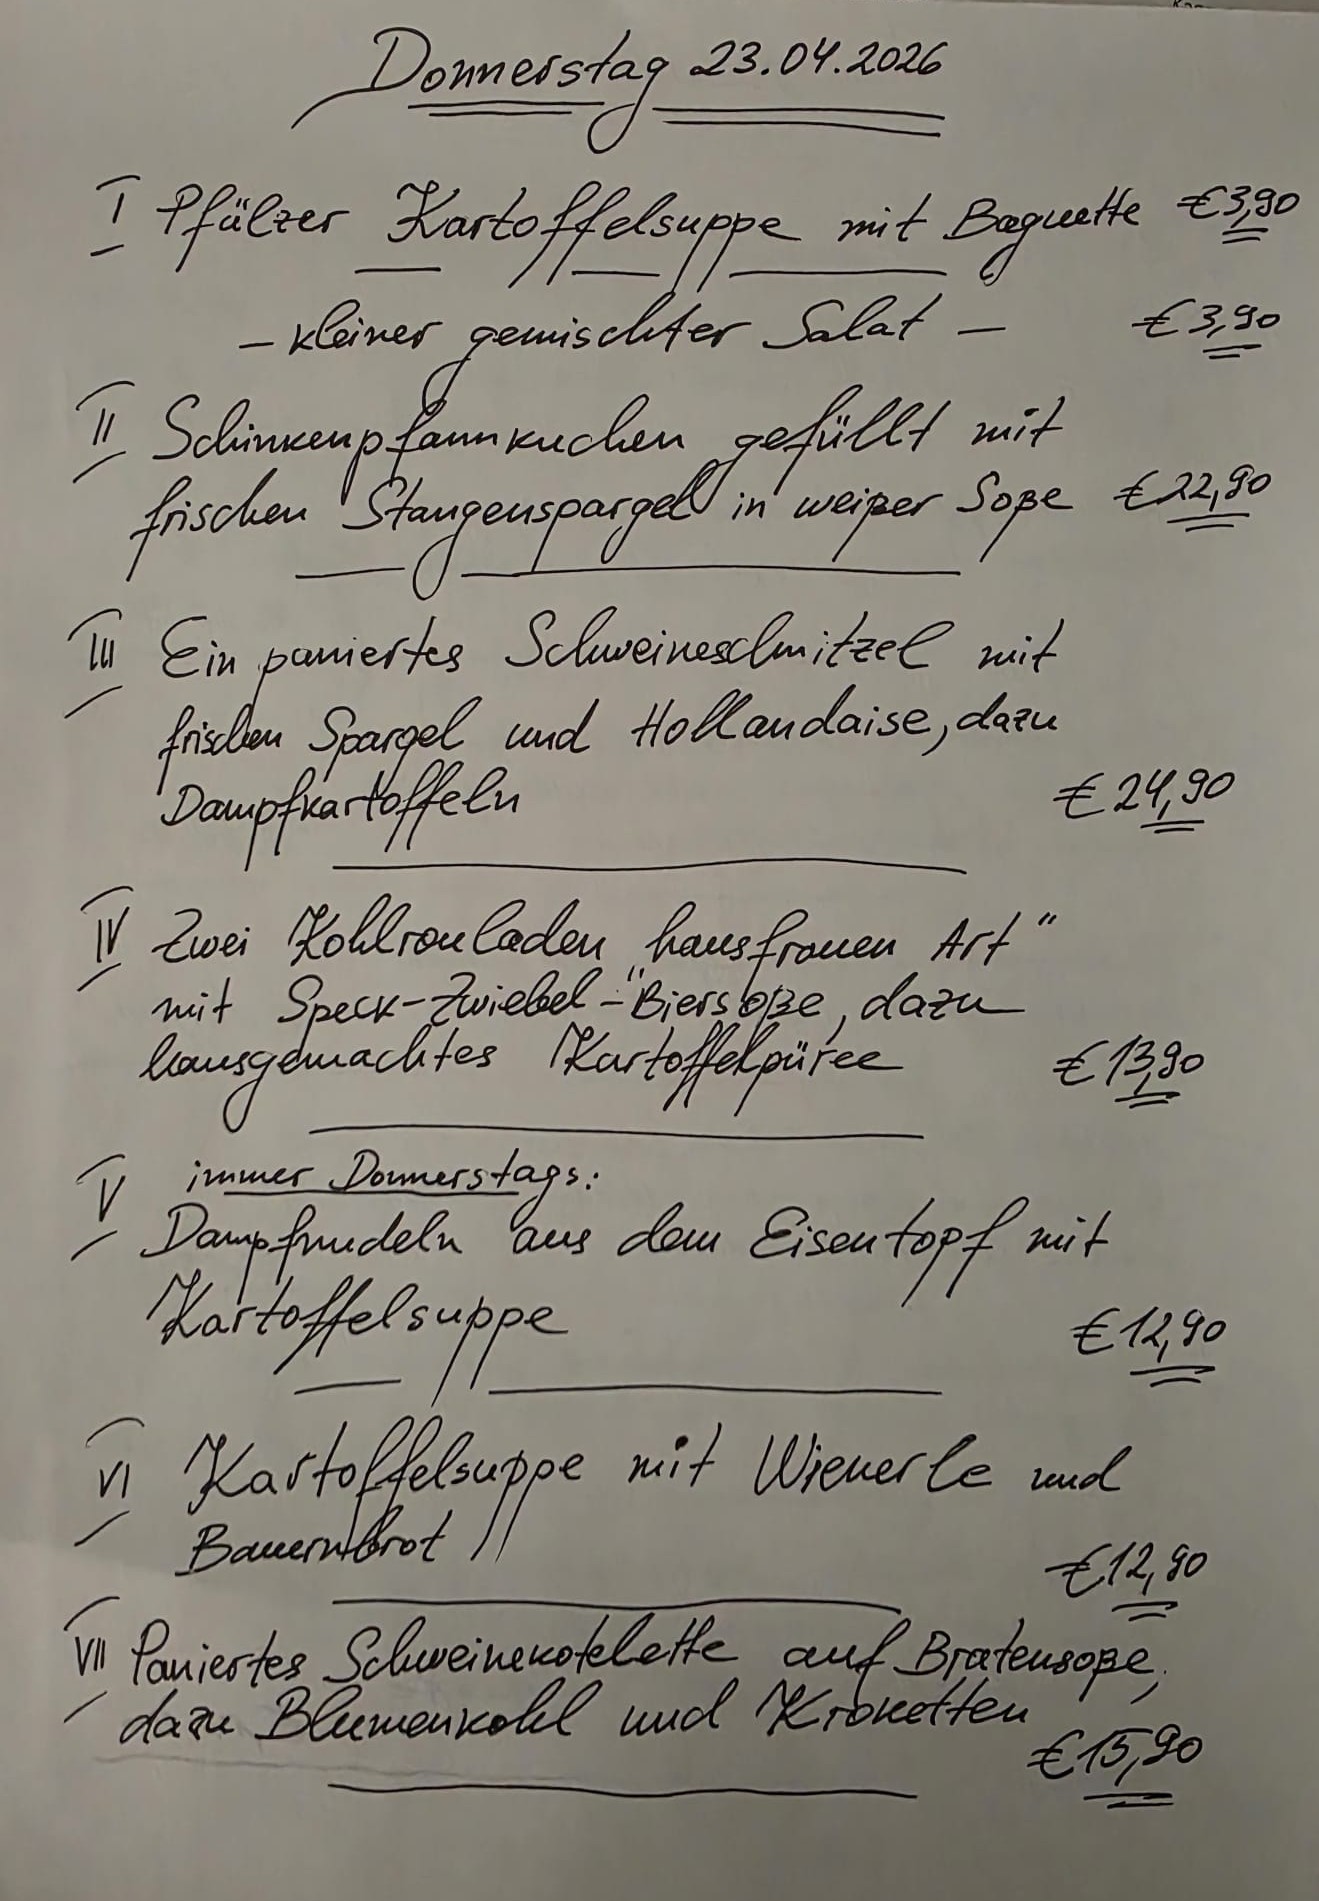 Donnerstag 23.04.2026
I Pfälzer Kartoffelsuppe mit Baguette €3,90
– kleiner gemischter Salat – €3,90
II Schinkenpfannkuchen gefüllt mit
frischen Stangenspargel in weißer Soße €22,90
III Ein paniertes Schweineschnitzel mit
frischen Spargel und Hollandaise, dazu
Dampfkartoffeln €24,90
IV Zwei Kohlrouladen „hausfrauen Art“
mit Speck-Zwiebel-Biersoße, dazu
hausgemachtes Kartoffelpüree €13,90
V immer Donnerstags:
Dampfnudeln aus dem Eisentopf mit
Kartoffelsuppe €12,90
VI Kartoffelsuppe mit Wienerle und
Bauernbrot €12,90
VII Paniertes Schweinekotelette auf Bratensoße,
dazu Blumenkohl und Kroketten
€15,90